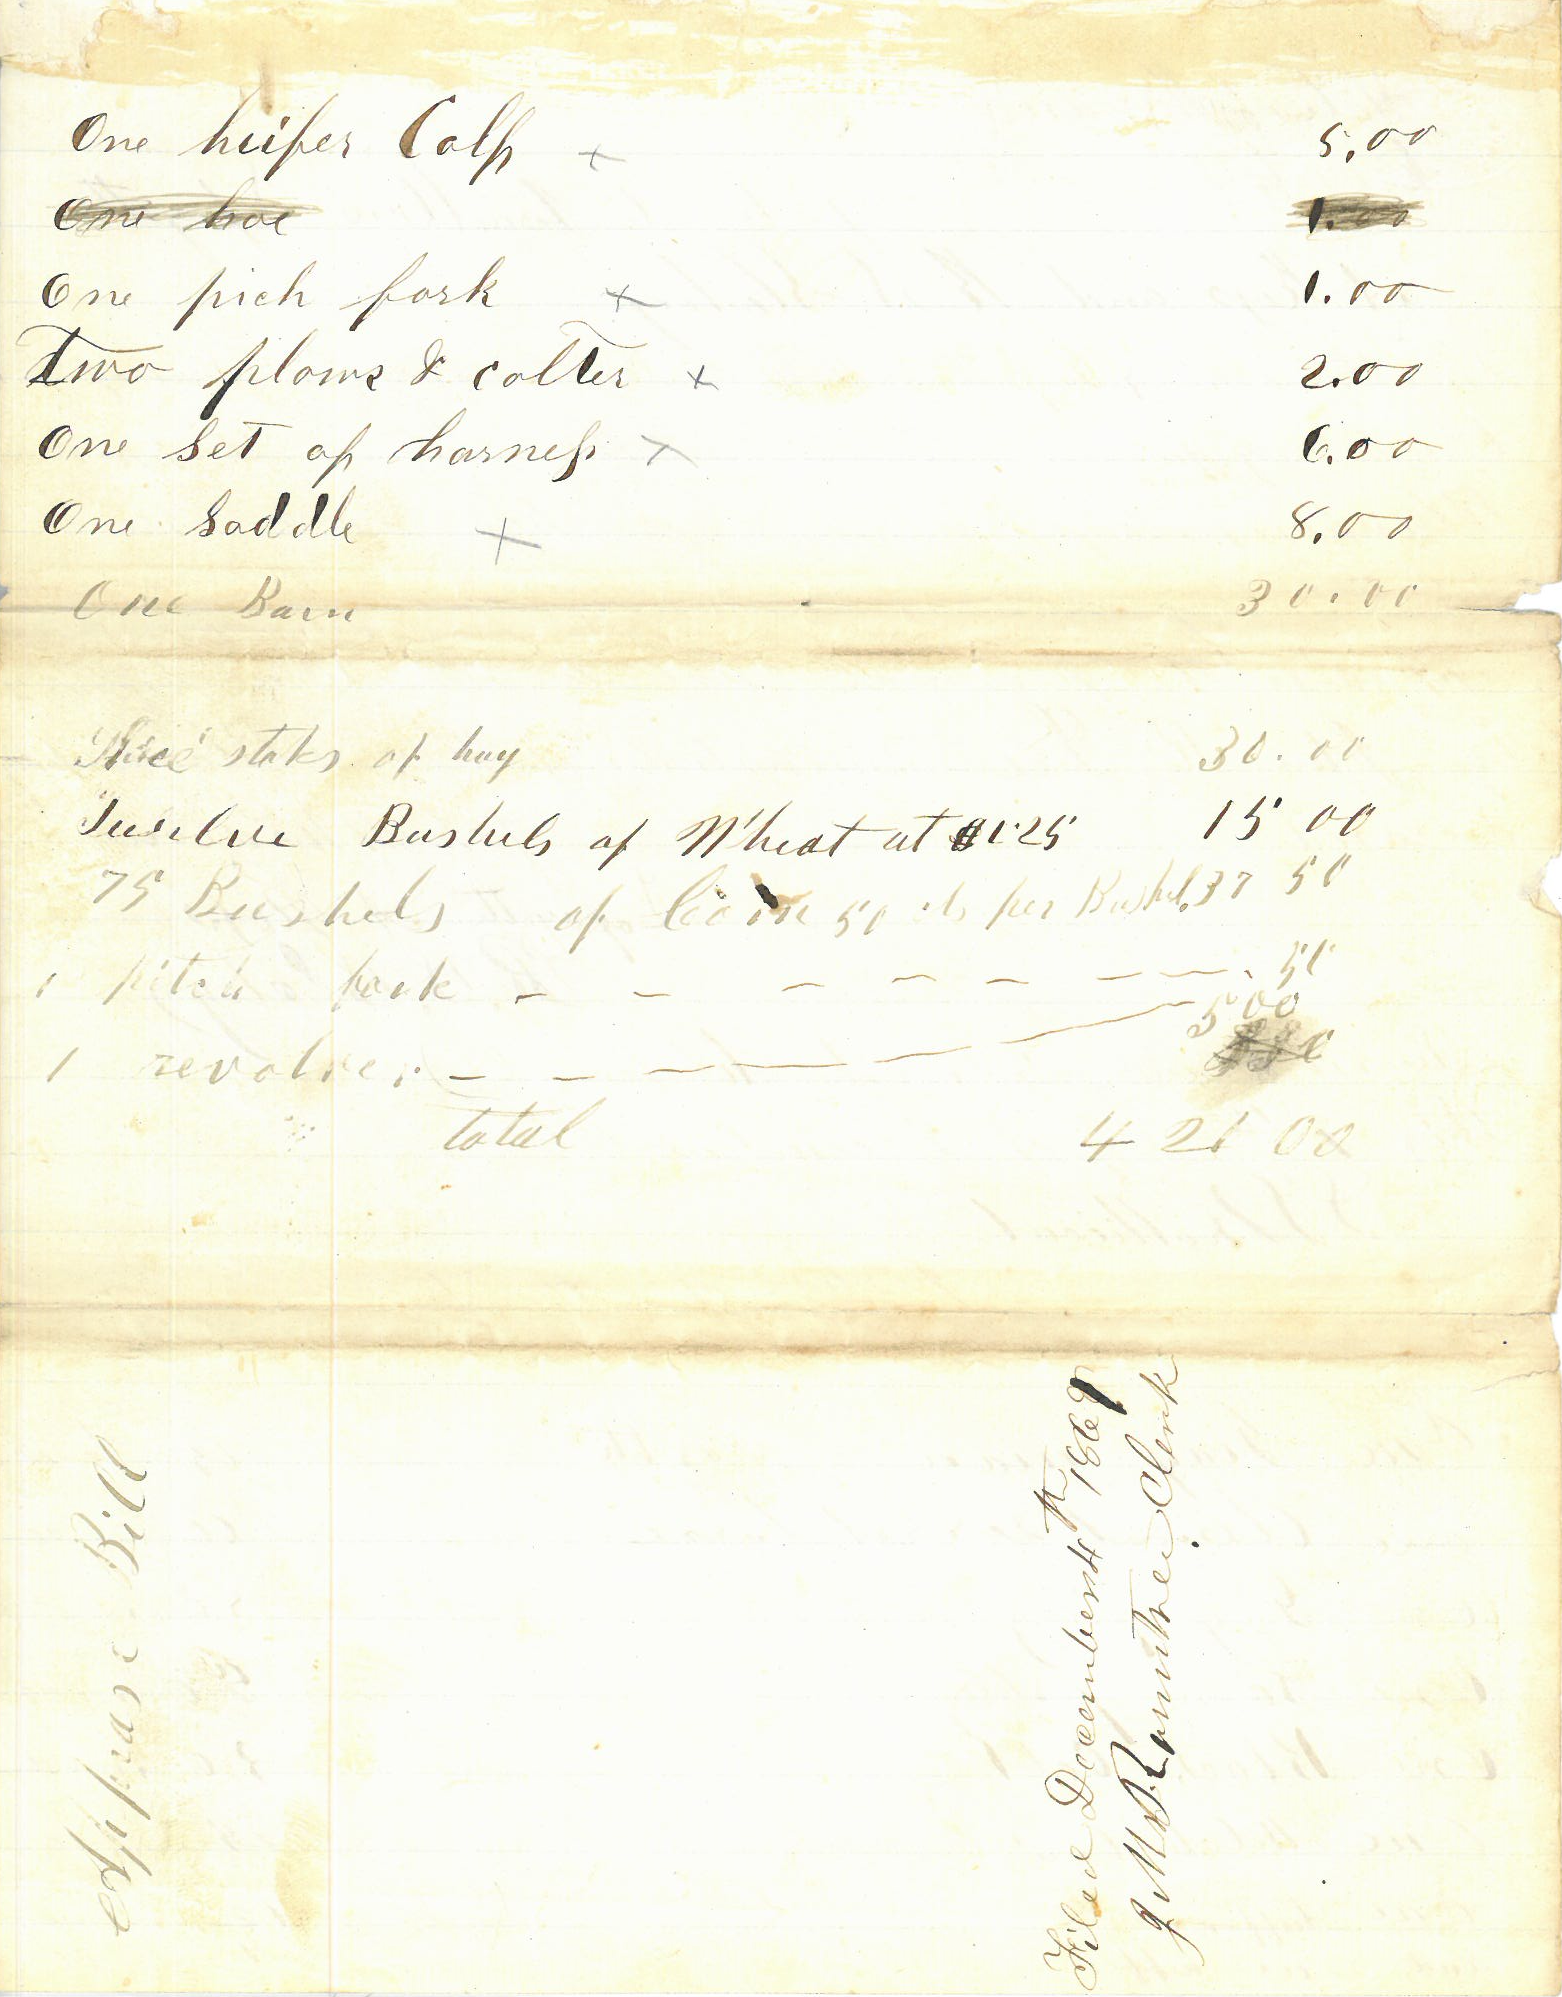 One heifer Calf × 5.00
One hoe 1.00
One pich fork × 1.00
Two plows & colter × 2.00
One set of harness × 6.00
One Saddle × 8.00
One Barn 30.00
Three staks of hay 30.00
Twelve Bushels of Wheat at $1.25 15 00
75 Bushels of Corn 50 cts per Bushel. 37 50
1 pitch fork - - - - - - - . 50
1 revolver - - - - - - 5 00
total 421 00
Apprase Bill
Filed December 4th 1869
Clerk